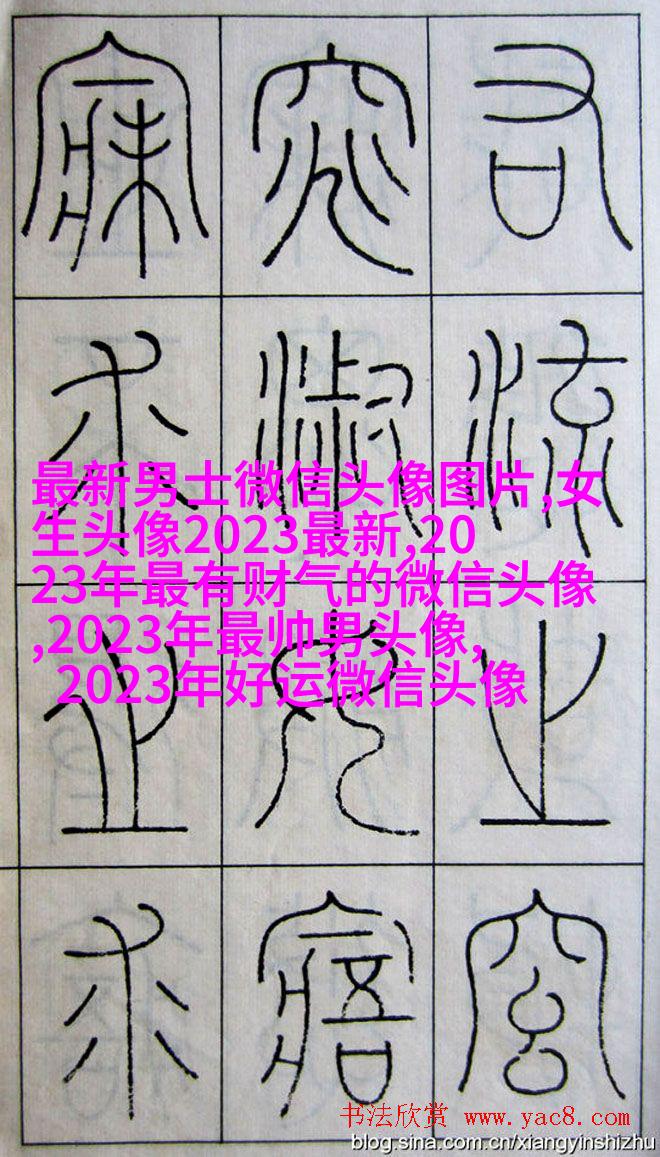 右流之窈
窕淑女寤
寐求之求
最新男士微信头像图片,女
生头像2023最新,20
23年最有财气的微信头像
,2023年最帅男头像,
2023年好运微信头像
书法欣赏 www.yac8.com
blog.sina.com.cn/xiangyinshizhu